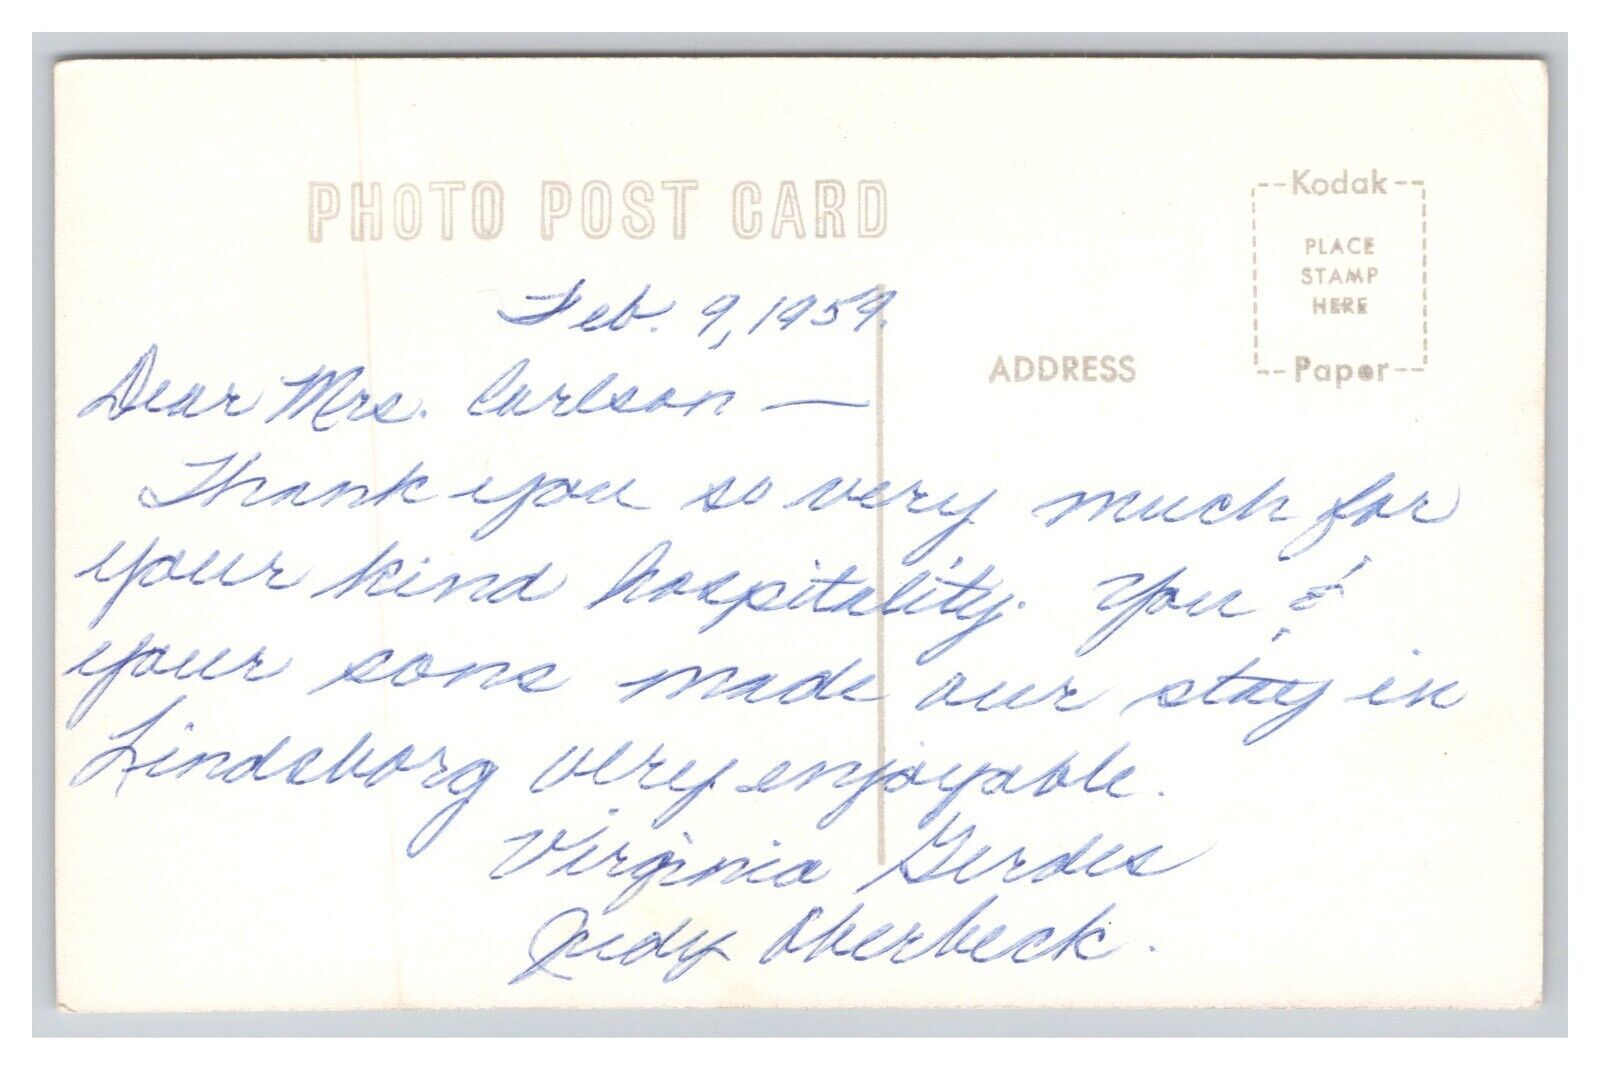 PHOTO POST CARD
--Kodak--
PLACE
STAMP
HERE
--Paper--
ADDRESS
Feb. 9, 1959.
Dear Mrs. Carlson —
Thank you so very much for
your kind hospitality. You &
your sons made our stay in
Lindsborg very enjoyable.
Virginia Gerdes
Judy Oberbeck.